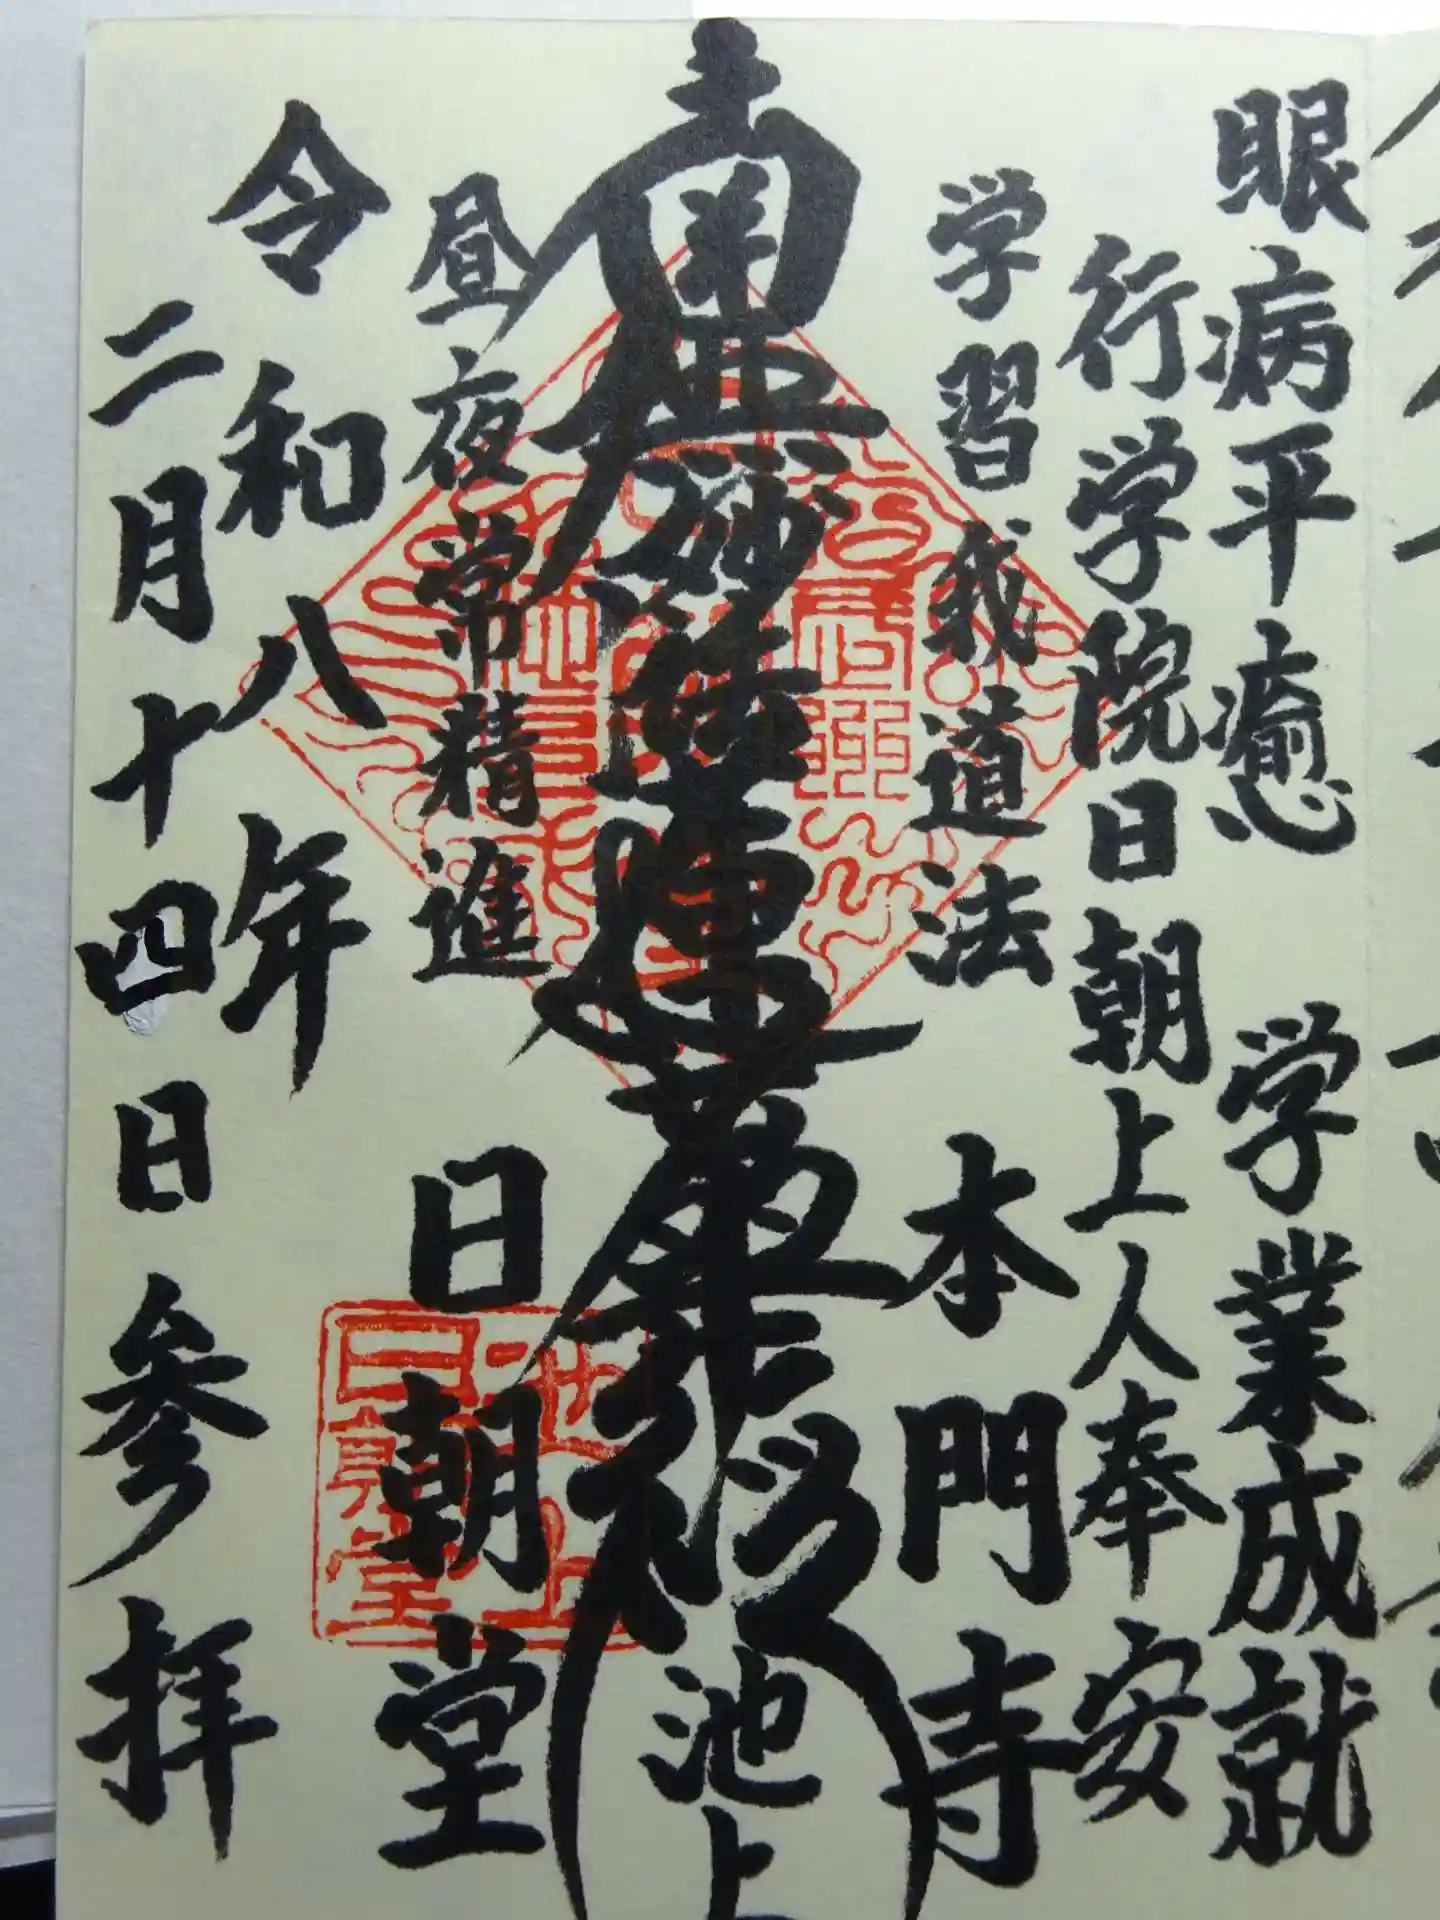 眼病平癒 学業成就
行学院日朝上人奉安
学習我道法 本門寺
南無妙法蓮華経
池上
昼夜常精進 日朝堂
令和八年
二月十四日参拝
池上
日朝堂